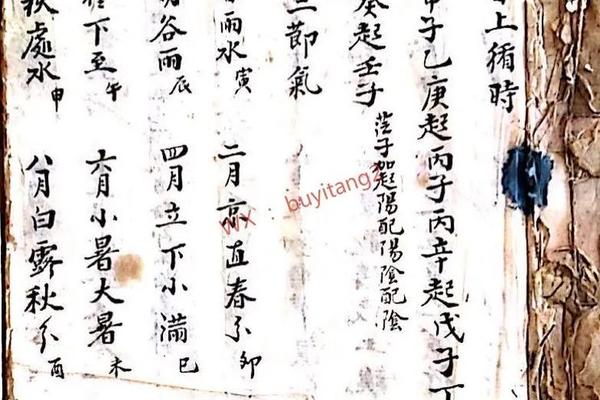 上循時
甲子乙庚起丙子丙辛起戊子丁
癸起壬子
子起陽配陽陰配陰
節氣
雨水寅 二月京直春分卯
谷雨辰 四月立下小滿巳
下至午 六月小暑大暑未
處水申 八月白露秋分酉
WX : buyitang2